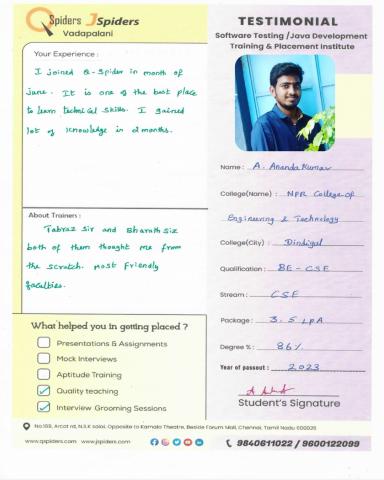 QSpiders JSpiders
Vadapalani
TESTIMONIAL
Software Testing /Java Development
Training & Placement Institute
Your Experience :
I joined Q-Spider in month of
june. It is one of the best place
to learn technical skills. I gained
lot of knowledge in 2 months.
About Trainers :
Tabraz Sir and Bharath Sir
both of them thought me from
the scratch. most friendly
faculties.
Name : A. Ananda Kumar
College(Name) : NPR College of
Engineering & Technology
College(City) : Dindigul
Qualification : BE - CSE
Stream : CSE
Package : 3.5 LPA
Degree % : 86%
Year of passout : 2023
Student's Signature
What helped you in getting placed ?
Presentations & Assignments
Mock Interviews
Aptitude Training
Quality teaching
Interview Grooming Sessions
No:169, Arcot rd, N.S.K salai, Opposite to Kamala Theatre, Beside Forum Mall, Chennai, Tamil Nadu 600026
www.qspiders.com www.jspiders.com
9840611022 / 9600122099